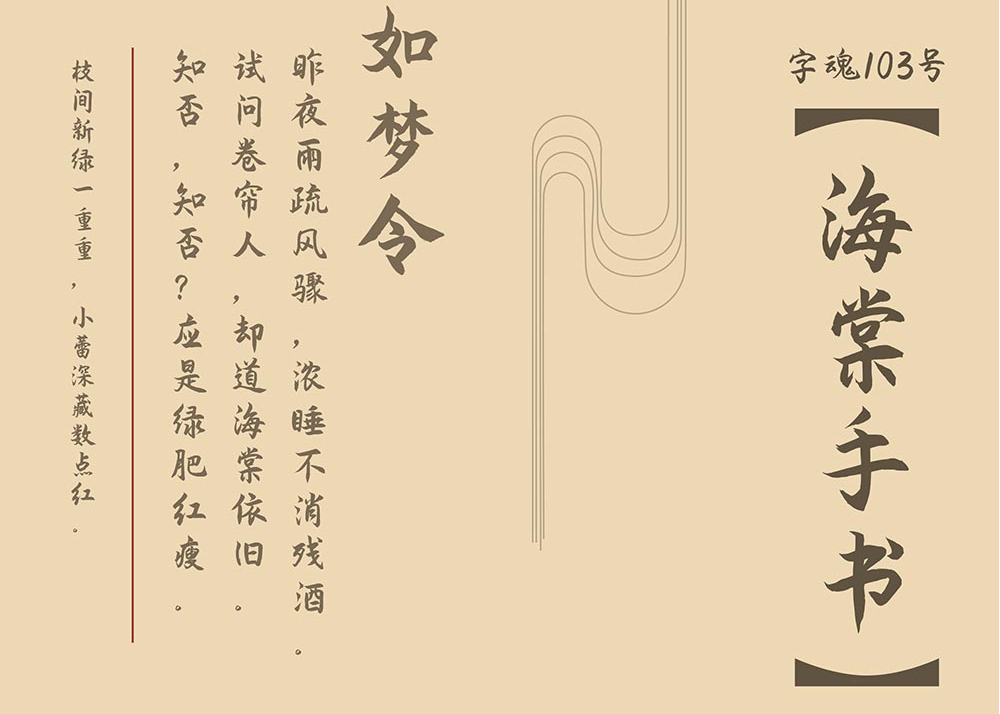 字魂103号
【海棠手书】
如梦令
昨夜雨疏风骤，浓睡不消残酒。
试问卷帘人，却道海棠依旧。
知否，知否？应是绿肥红瘦。
枝间新绿一重重，小蕾深藏数点红。